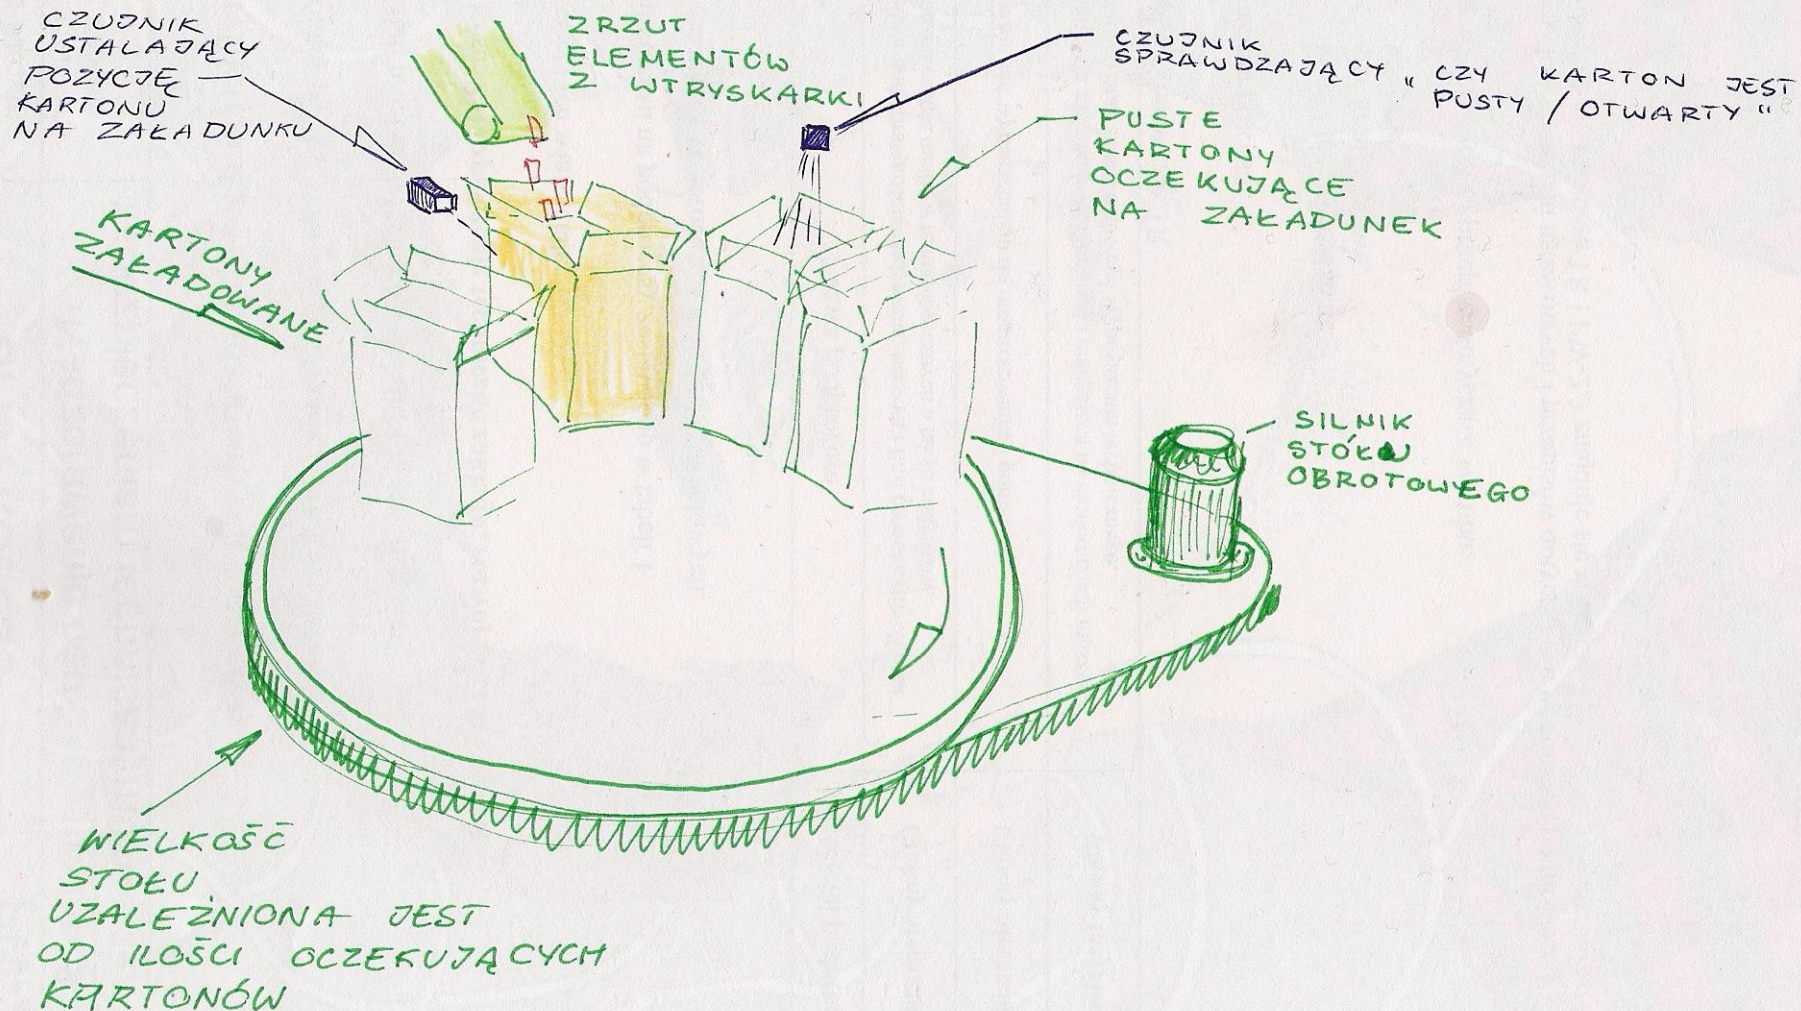 CZUJNIK
USTALAJĄCY
POZYCJĘ
KARTONU
NA ZAŁADUNKU
ZRZUT
ELEMENTÓW
Z WTRYSKARKI
CZUJNIK
SPRAWDZAJĄCY „ CZY KARTON JEST
PUSTY / OTWARTY "
PUSTE
KARTONY
OCZEKUJĄCE
NA ZAŁADUNEK
KARTONY
ZAŁADOWANE
SILNIK
STÓŁU
OBROTOWEGO
WIELKOŚĆ
STOŁU
UZALEŻNIONA JEST
OD ILOŚCI OCZEKUJĄCYCH
KARTONÓW